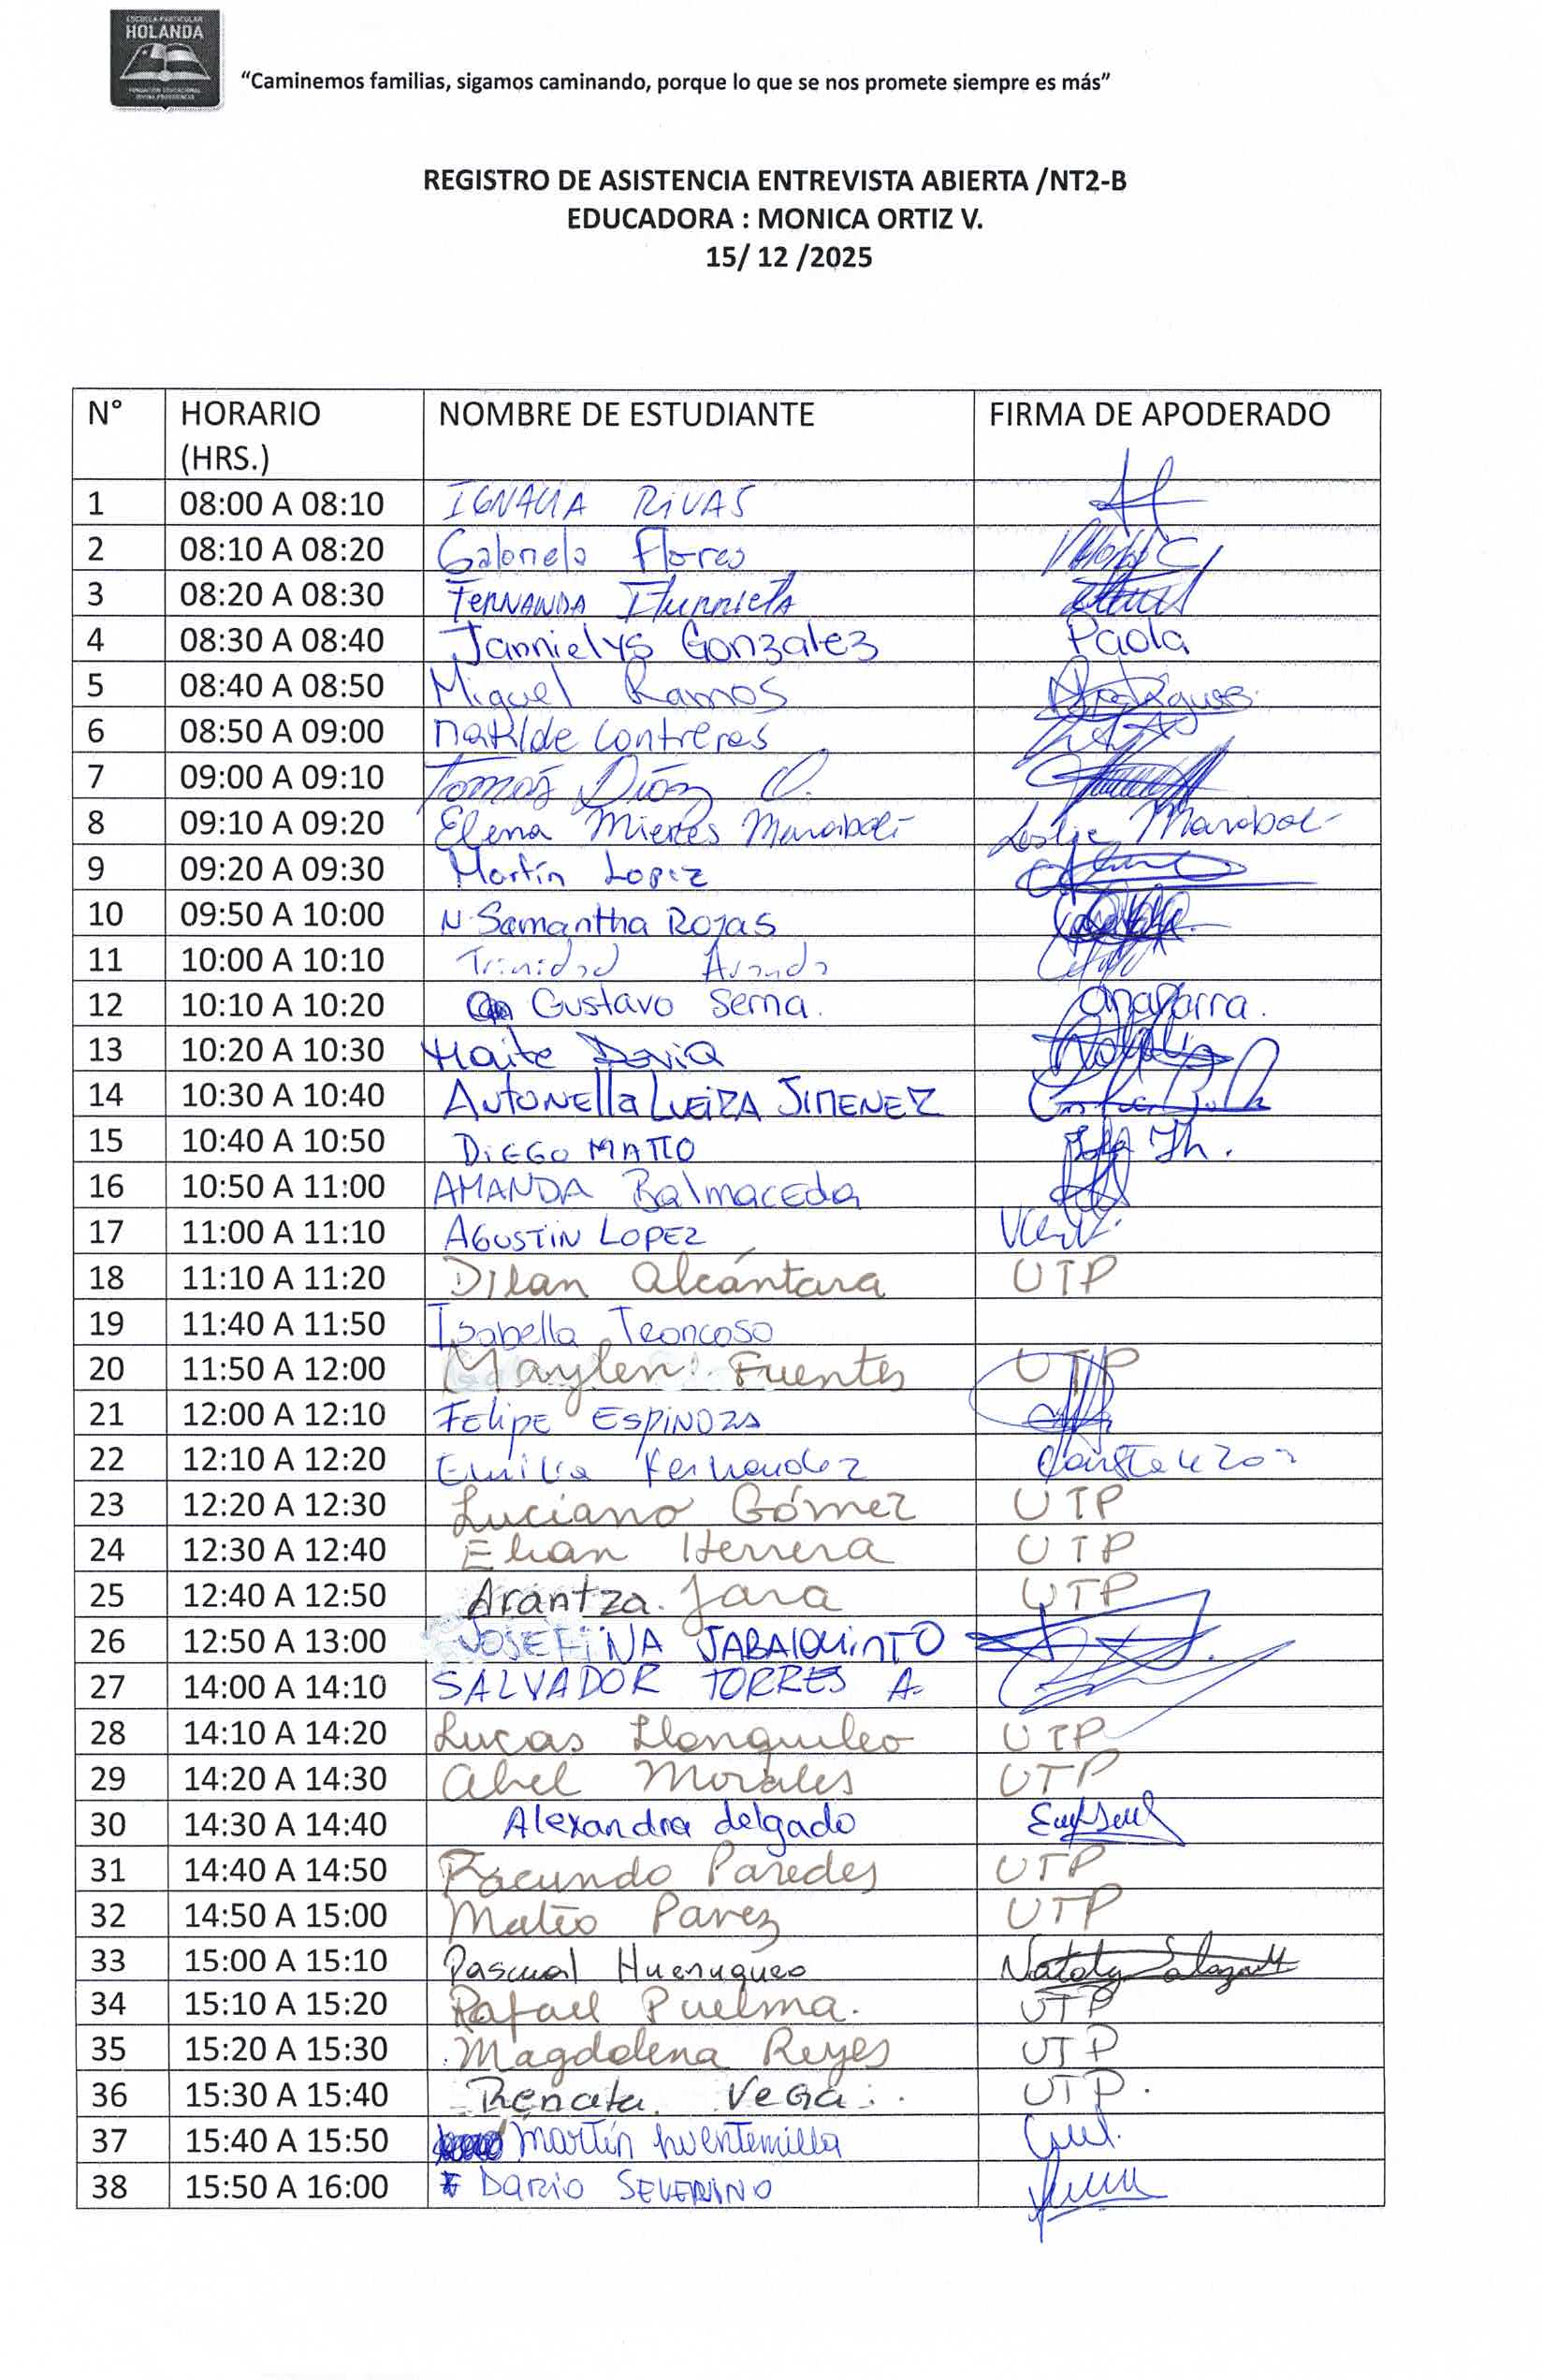 ESCUELA PARTICULAR
HOLANDA
FUNDACIÓN EDUCACIONAL
DIVINA PROVIDENCIA
“Caminemos familias, sigamos caminando, porque lo que se nos promete siempre es más”
REGISTRO DE ASISTENCIA ENTREVISTA ABIERTA /NT2-B
EDUCADORA : MONICA ORTIZ V.
15/ 12 /2025
N° HORARIO (HRS.) NOMBRE DE ESTUDIANTE FIRMA DE APODERADO
1 08:00 A 08:10 IGNACIA RIVAS
2 08:10 A 08:20 Gabriela Flores
3 08:20 A 08:30 FERNANDA Iturrieta
4 08:30 A 08:40 Jannielys Gonzalez Paola
5 08:40 A 08:50 Miguel Ramos Rodriguez
6 08:50 A 09:00 Matilde Contreras
7 09:00 A 09:10 Tomás Díaz O.
8 09:10 A 09:20 Elena Mieres Maraboli Leslie Maraboli
9 09:20 A 09:30 Martín Lopez
10 09:50 A 10:00 N. Samantha Rojas
11 10:00 A 10:10 Trinidad Aranda
12 10:10 A 10:20 Gustavo Serna. Ana Parra.
13 10:20 A 10:30 Maite Natalia
14 10:30 A 10:40 Antonella Lueiza JIMENEZ
15 10:40 A 10:50 DIEGO
16 10:50 A 11:00 AMANDA Balmaceda
17 11:00 A 11:10 AGUSTIN LOPEZ
18 11:10 A 11:20 Dilan Alcántara UTP
19 11:40 A 11:50 Isabella Troncoso
20 11:50 A 12:00 Maylen Fuentes UTP
21 12:00 A 12:10 Felipe ESPINOZA
22 12:10 A 12:20 Emilia Fernandez
23 12:20 A 12:30 Luciano Gómez UTP
24 12:30 A 12:40 Elian Herrera UTP
25 12:40 A 12:50 Arantza Jara UTP
26 12:50 A 13:00 JOSEFINA JABALQUINTO
27 14:00 A 14:10 SALVADOR TORRES A.
28 14:10 A 14:20 Lucas Llanquileo UTP
29 14:20 A 14:30 Abel Morales UTP
30 14:30 A 14:40 Alexandra delgado
31 14:40 A 14:50 Facundo Paredes UTP
32 14:50 A 15:00 Mateo Pavez UTP
33 15:00 A 15:10 Pascual Huenuqueo Nataly
34 15:10 A 15:20 Rafael Puelma. UTP
35 15:20 A 15:30 Magdalena Reyes UTP
36 15:30 A 15:40 Renata Vega UTP.
37 15:40 A 15:50 Martín huentemilla
38 15:50 A 16:00 DARIO SEVERINO